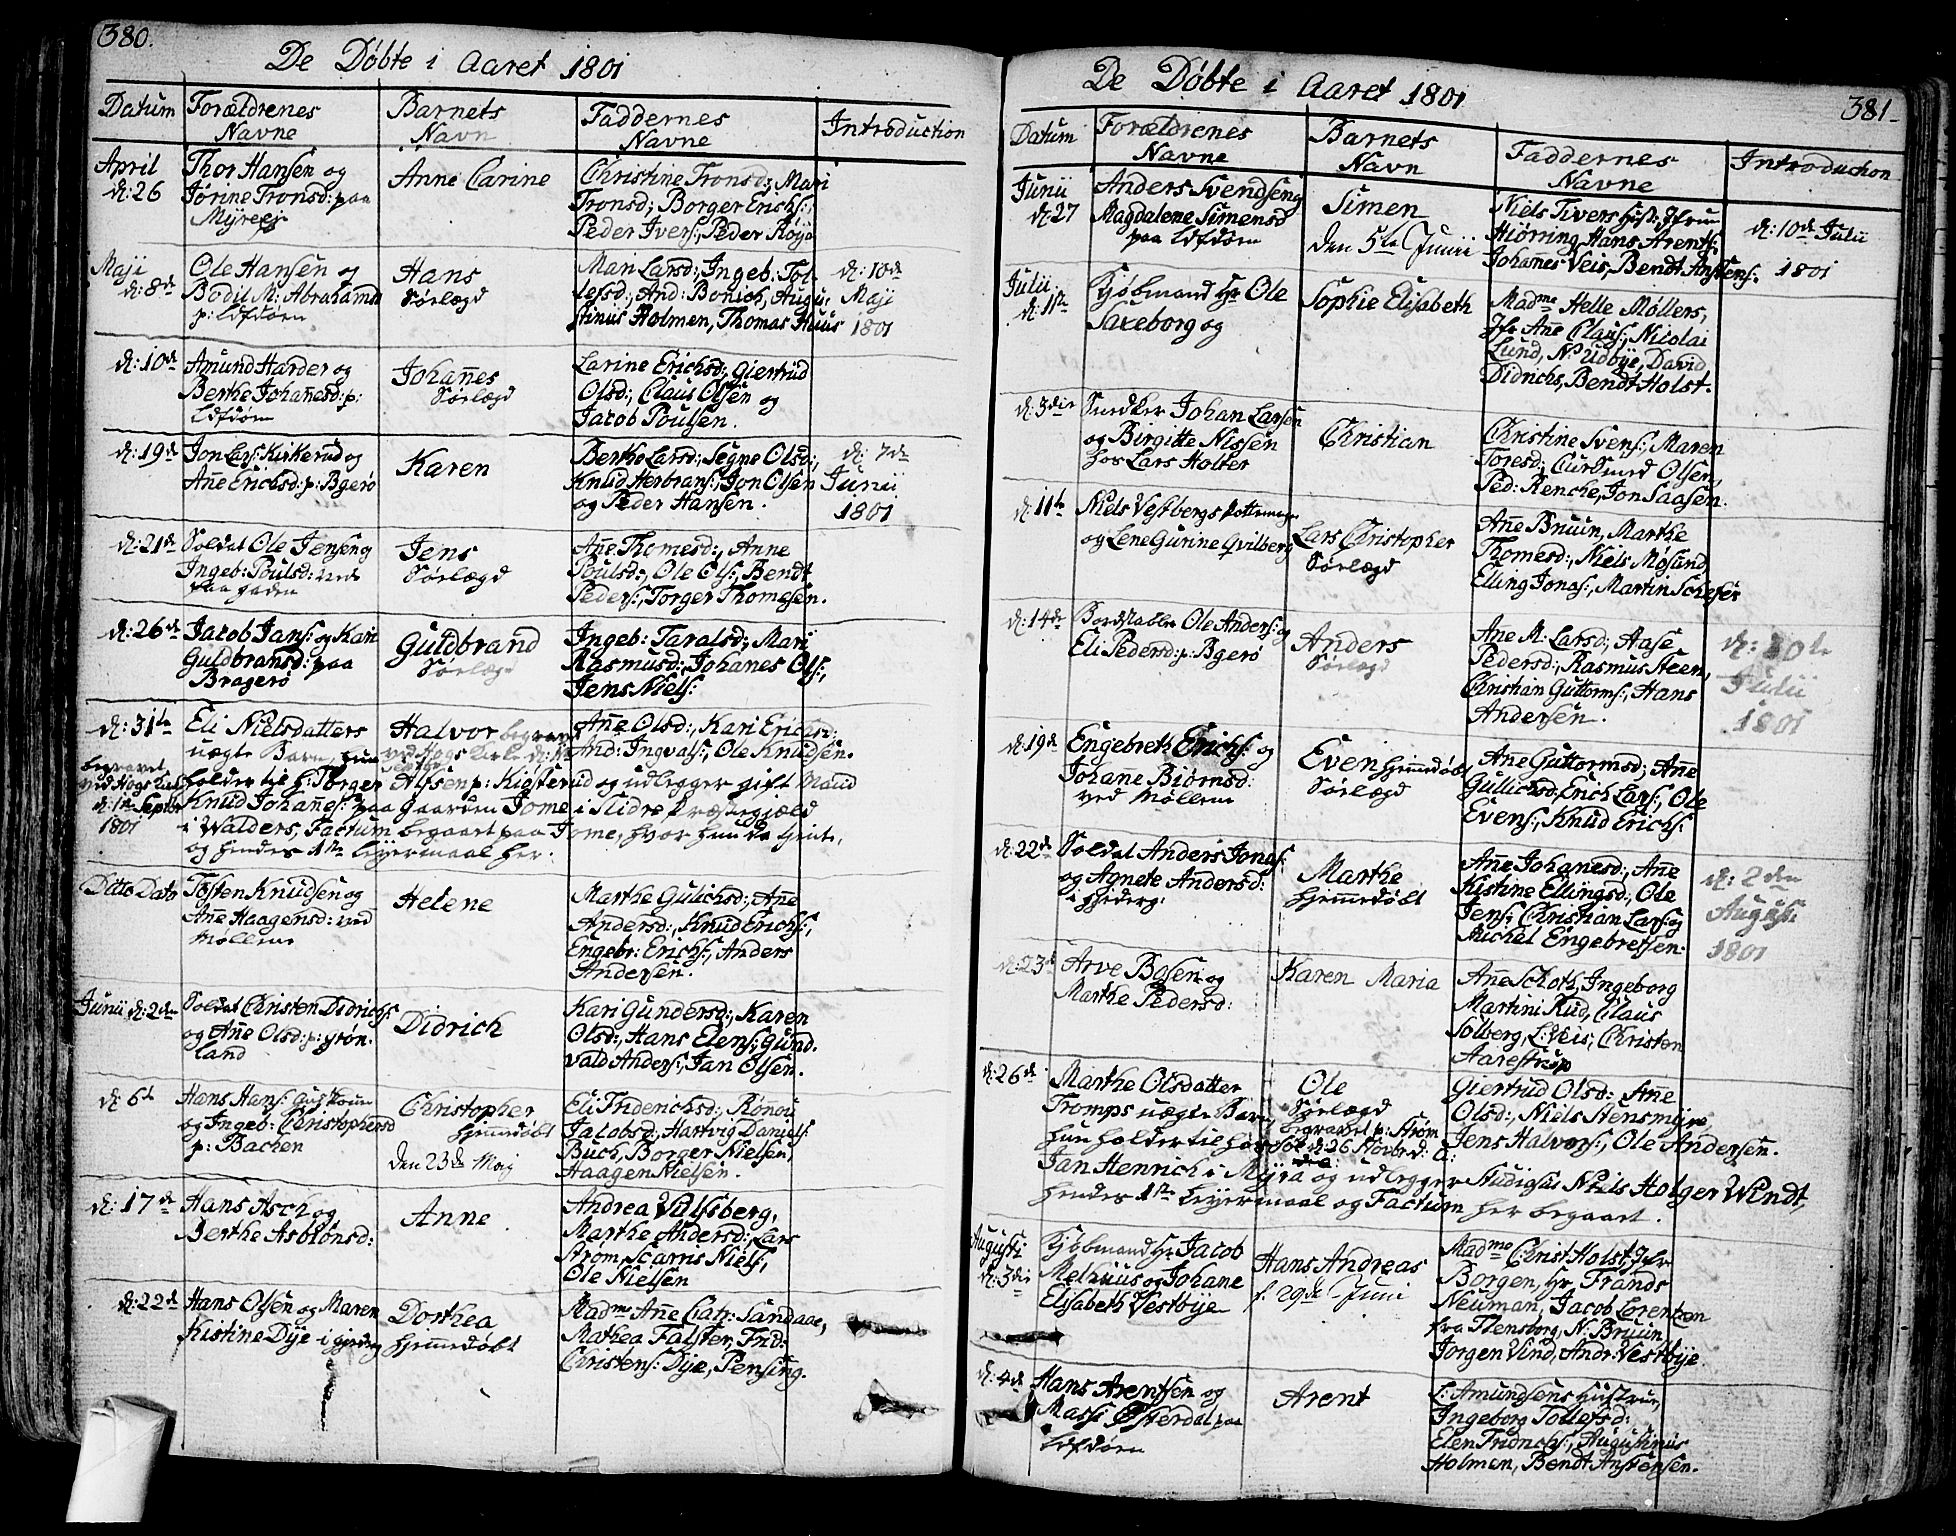 380.
De Døbte i Aaret 1801
Datum Forældrenes Navne
Barnets Navn
Faddernes Navne
Introduction
April d: 26
Thor Hansen og
Jørine Tronsd: paa
Myreej
Anne Carine
Christine Tronsd:, Mari
Tronsd:, Borger Erichs:,
Peder Ivers:, Peder Roijo
Maji d: 8de
Ole Hansen og
Bodil M: Abrahamsd
p: Løkdørn
Hans
Sørlægd
Mari Larsd:, Ingeb: Tol-
lefsd:, And: Bonich, Augu-
stinus Holmen, Thomas Huus
d: 10de
Maji
1801
d: 10de
Amund Harder og
Berthe Johañesd: p:
Johañes
Sørlægd
Larine Erichsd:, Giertrud
Olsd:, Claus Olsen og
Jacob Poulsen.
d: 19de
Jon Lars: Kirkerud og
Añe Erichsd: p: Bgerø
Karen
Berthe Larsd:, Segne Olsd:,
Knud Herbrans:, Jon Olsen
og Peder Hansen.
d: 7de
Junii
1801
d: 21de
Soldat Ole Jensen og
Ingeb: Poulsd: ved
Jens
Sørlægd
Añe Thomesd:, Anne
Poulsd:, Ole Ols:, Bendt
Peders:, Torger Thomesen.
d: 26de
Jacob Jans: og Kari
Guldbransd: paa
Bragerø
Guldbrand
Sørlægd
Ingeb: Taralsd:, Mari
Rasmusd:, Johanes Ols:,
Jens Niels:
d: 31te
Eli Nielsdatters
uægte Barn, hun
Halvor begravet
ved Hougs Kirke
Añe Olsd:, Kari Erichsd:
And: Ingvals:, Ole Knudsen.
begravet
ved Hogs Kirke
d: 1te Septbr
1801
holder til h: Torger Alfsen p: Kiøsterud og udlegger gift Mand
Knud Johañes: paa Gaarden Jome i Slidre Præstegield
i Walders, Factum begaaet paa Jome, hvor hun da tiente,
og hendes 1te Leyermaal her.
Ditto Dato
Tosten Knudsen og
Añe Haagensd: ved
Møllerne
Helene
Marthe Gulichsd:, Añe
Andersd:, Knud Erichs:,
Engebr: Erichs:, Anders
Andersen.
Junii d: 2den
Soldat Christen Didrichs:
og Añe Olsd: p: Grøn-
land
Didrich
Kari Gundersd:, Karen
Olsd:, Hans Elens:, Gund-
vald Anders:, Jan Olsen.
d: 6te
Hans Hans:
og Ingeb: Christophersd
p: Bachen
Christopher
hjemmedøbt
den 23de Maij
Eli Friderichsd:, Rønnou
Jacobsd:, Hartvig Daniels:
Buch, Borger Nielsen,
Haagen Nielsen.
d: 17de
Hans Asch og
Berthe Asbiønsd:
Anne
Andrea Vulfsberg,
Marthe Andersd:, Lars
Strøm, Scarris Niels:,
Ole Nielsen
d: 22de
Hans Olsen og Maren
Kistine Dye i
Dorthea
hjemmedøbt
Madme Añe Catr: Sandaae,
Mathea Falster, Frid:
Christens: Dije, Pensing.
381.
De Døbte i Aaret 1801
Datum Forældrenes Navne
Barnets Navn
Faddernes Navne
Introduction
Junii
d: 27
Anders Svendsen og
Magdalene Simensd
paa Løkdørn
Simen
den 5te Junii
Niels Tivers Hust:, Jfrue
Hiørring, Hans Arents:
Johanes Veis, Bendt Anstens:.
d: 10de Julii
1801
Julii
d: 1ste
Kjøbmand Hr Ole
Saxeborg og
Sophie Elisabeth
Madme Helle Møllers,
Jfr Ane Claus:, Nicolai
Lund, Ns Udbye, David
Didrichs, Bendt Holst.
d: 3die
Snedker Johan Larsen
og Birgitte Nissen
hos Lars Holter
Christian
Christine Svens:, Maren
Toresd:, Olsen,
Ped: Renche, Jon Saasen.
d: 11te
Niels Vestbergs
og Lene Gurine Qvilberg
Lars Christopher
Sørlægd
Añe Bruun, Marthe
Thomesd:, Niels Møsund,
Elling Jonas:, Martin Schefer
d: 14de
Ole Anders: og
Eli Pedersd: p: Bgerø
Anders
Sørlægd
Ane M: Larsd:, Aase
Pedersd:, Rasmus Steen,
Christian Guttorms:, Hans
Andersen.
d: 30te
Julii
1801
d: 19de
Engebreth Erichs: og
Johañe Biørnsd:
ved Møllerne
Even hjemmedøbt
Sørlægd
Añe Guttormsd:, Añe
Gulichsd, Erich Lars:, Ole
Evens:, Knud Erichs:
d: 22de
Soldat Anders Jonas:
og Agnete Andersd:
Marthe
hjemmedøbt
Añe Johanesd:, Añe
Kistine Ellingsd:, Ole
Jens:, Christian Lars: og
Michel Engebretsen.
d: 2den
Augusti
1801
d: 23de
Arve Bosen og
Marthe Pedersd:
Karen Maria
Ane Schoth, Ingeborg
Martini Rud, Claus
Solberg, L: Veis:, Christen
Aarestrup
d: 26de
Marthe Olsdatter
Tromps uægte Barn,
hun holder til hos
Ole
Sørlægd
begravet p: Strøm
d: 26 Novbr: A:
Giertrud Olsd:, Añe
Olsd:, Niels Stensmyre,
Jens Halvors:, Ole Andersen.
Jan Henrich i Myra og udlegger Studiosus Niels Holger Windt,
hendes 1te Leyermaal og Factum her begaaet.
Augusti
d: 3die
Kjøbmand Hr Jacob
Melhuus og Johane
Elisabeth Vestbije
Hans Andreas
f. 29de Juni
Madme Christ: Holst, Jfr
Borgen, Hr Frands
Neuman, Jacob Lorentzen
fra Flensborg, N. Bruun,
Jørgen Vind, Andr: Vestbije
d: 4de
Hans Arentsen og
Massi Østerdal paa
Løkdørn
Arent
L: Amundsens Hustrue,
Ingeborg Tollefsd:
Elen Fridrichs:, Augustinus
Holmen, Bendt Anstensen.